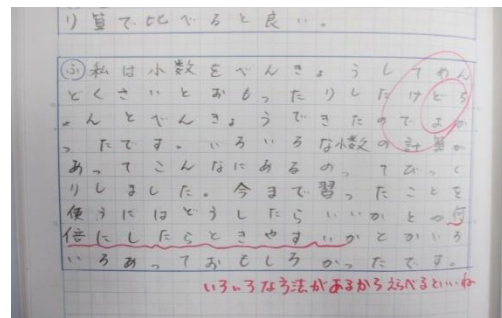 り算で比べると良い。
ふ 私は小数をべんきょうしてめん
どくさいとおもったりしたけどち
ょんとべんきょうできたのでよか
ったです。いろいろな小数の計算が
あってこんなにあるの、てびっく
りしました。今まで習ったことを
使うにはどうしたらいいかとか何
倍にしたらときやすいかとかいろ
いろあっておもしろかったです。
いろいろな方法があるからえらべるといいね